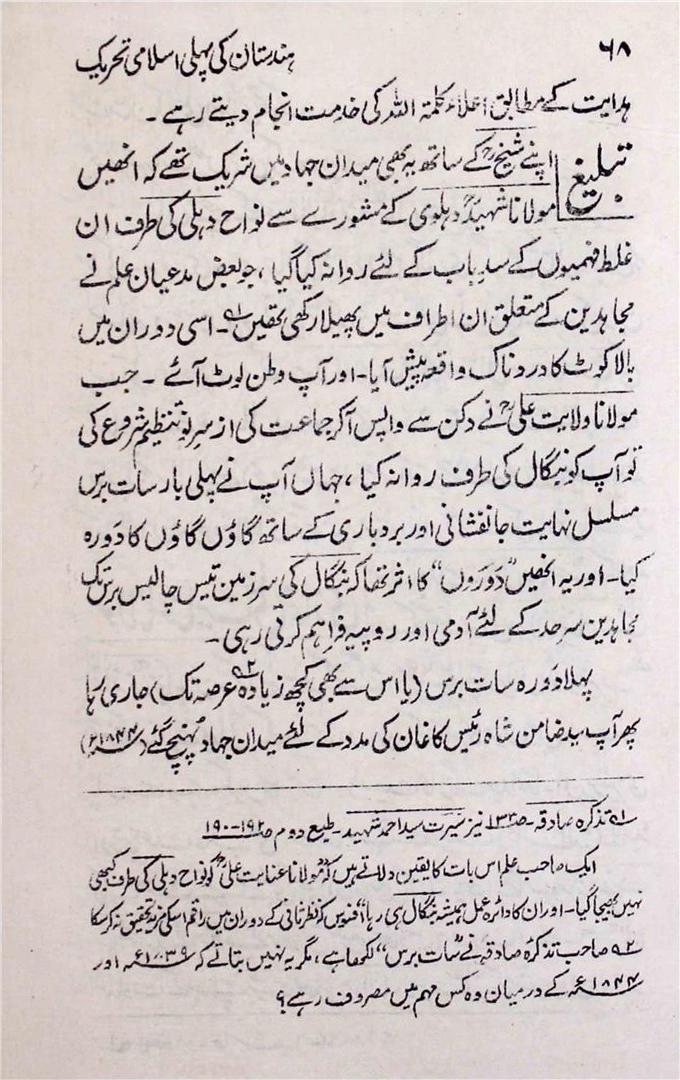 ۶۸ ہندستان کی پہلی اسلامی تحریک
ہدایت کے مطابق اعلاء کلمۃ اللہ کی خدمت انجام دیتے رہے۔
تبلیغ اپنے شیخؒ کے ساتھ یہ بھی میدان جہاد میں شریک تھے کہ انھیں
مولانا شہیدؒ دہلوی کے مشورے سے نواح دہلی کی طرف ان
غلط فہمیوں کے سد باب کے لئے روانہ کیا گیا، جو بعض مدعیان علم نے
مجاہدین کے متعلق ان اطراف میں پھیلا رکھی تھیں ۹۱۔ اسی دوران میں
بالاکوٹ کا دردناک واقعہ پیش آیا۔ اور آپ وطن لوٹ آئے۔ جب
مولانا ولایت علیؒ نے دکن سے واپس آکر جماعت کی از سر نو تنظیم شروع کی
تو آپ کو بنگال کی طرف روانہ کیا، جہاں آپ نے پہلی بار سات برس
مسلسل نہایت جانفشانی اور بردباری کے ساتھ گاؤں گاؤں کا دَورہ
کیا۔ اور یہ انھیں "دَوروں" کا اثر تھا کہ بنگال کی سرزمین تیس چالیس برس تک
مجاہدین سرحد کے لئے آدمی اور روپیہ فراہم کرتی رہی۔
پہلا دَورہ سات برس (یا اس سے بھی کچھ زیادہ ۹۲ عرصہ تک) جاری رہا
پھر آپ سید ضامن شاہ رئیس کاغان کی مدد کے لئے میدان جہاد پہنچ گئے (۱۸۴۴ء)
۹۱ تذکرہ صادقہ۔ ص۱۳۰ نیز سیرت سید احمد شہید۔ طبع دوم ص۱۹۲-۱۹۰
ایک صاحب علم اس بات کا یقین دلاتے ہیں کہ "مولانا عنایت علیؒ کو نواح دہلی کی طرف کبھی
نہیں بھیجا گیا۔ اور ان کا دائرہ عمل ہمیشہ بنگال ہی رہا" افسوس کہ نظر ثانی کے دوران میں راقم اسکی مزید تحقیق نہ کر سکا
۹۲ صاحب تذکرہ صادقہ نے "سات برس" لکھا ہے، مگر یہ نہیں بتاتے کہ اور
۱۸۴۴ء کے درمیان وہ کس مہم میں مصروف رہے؟